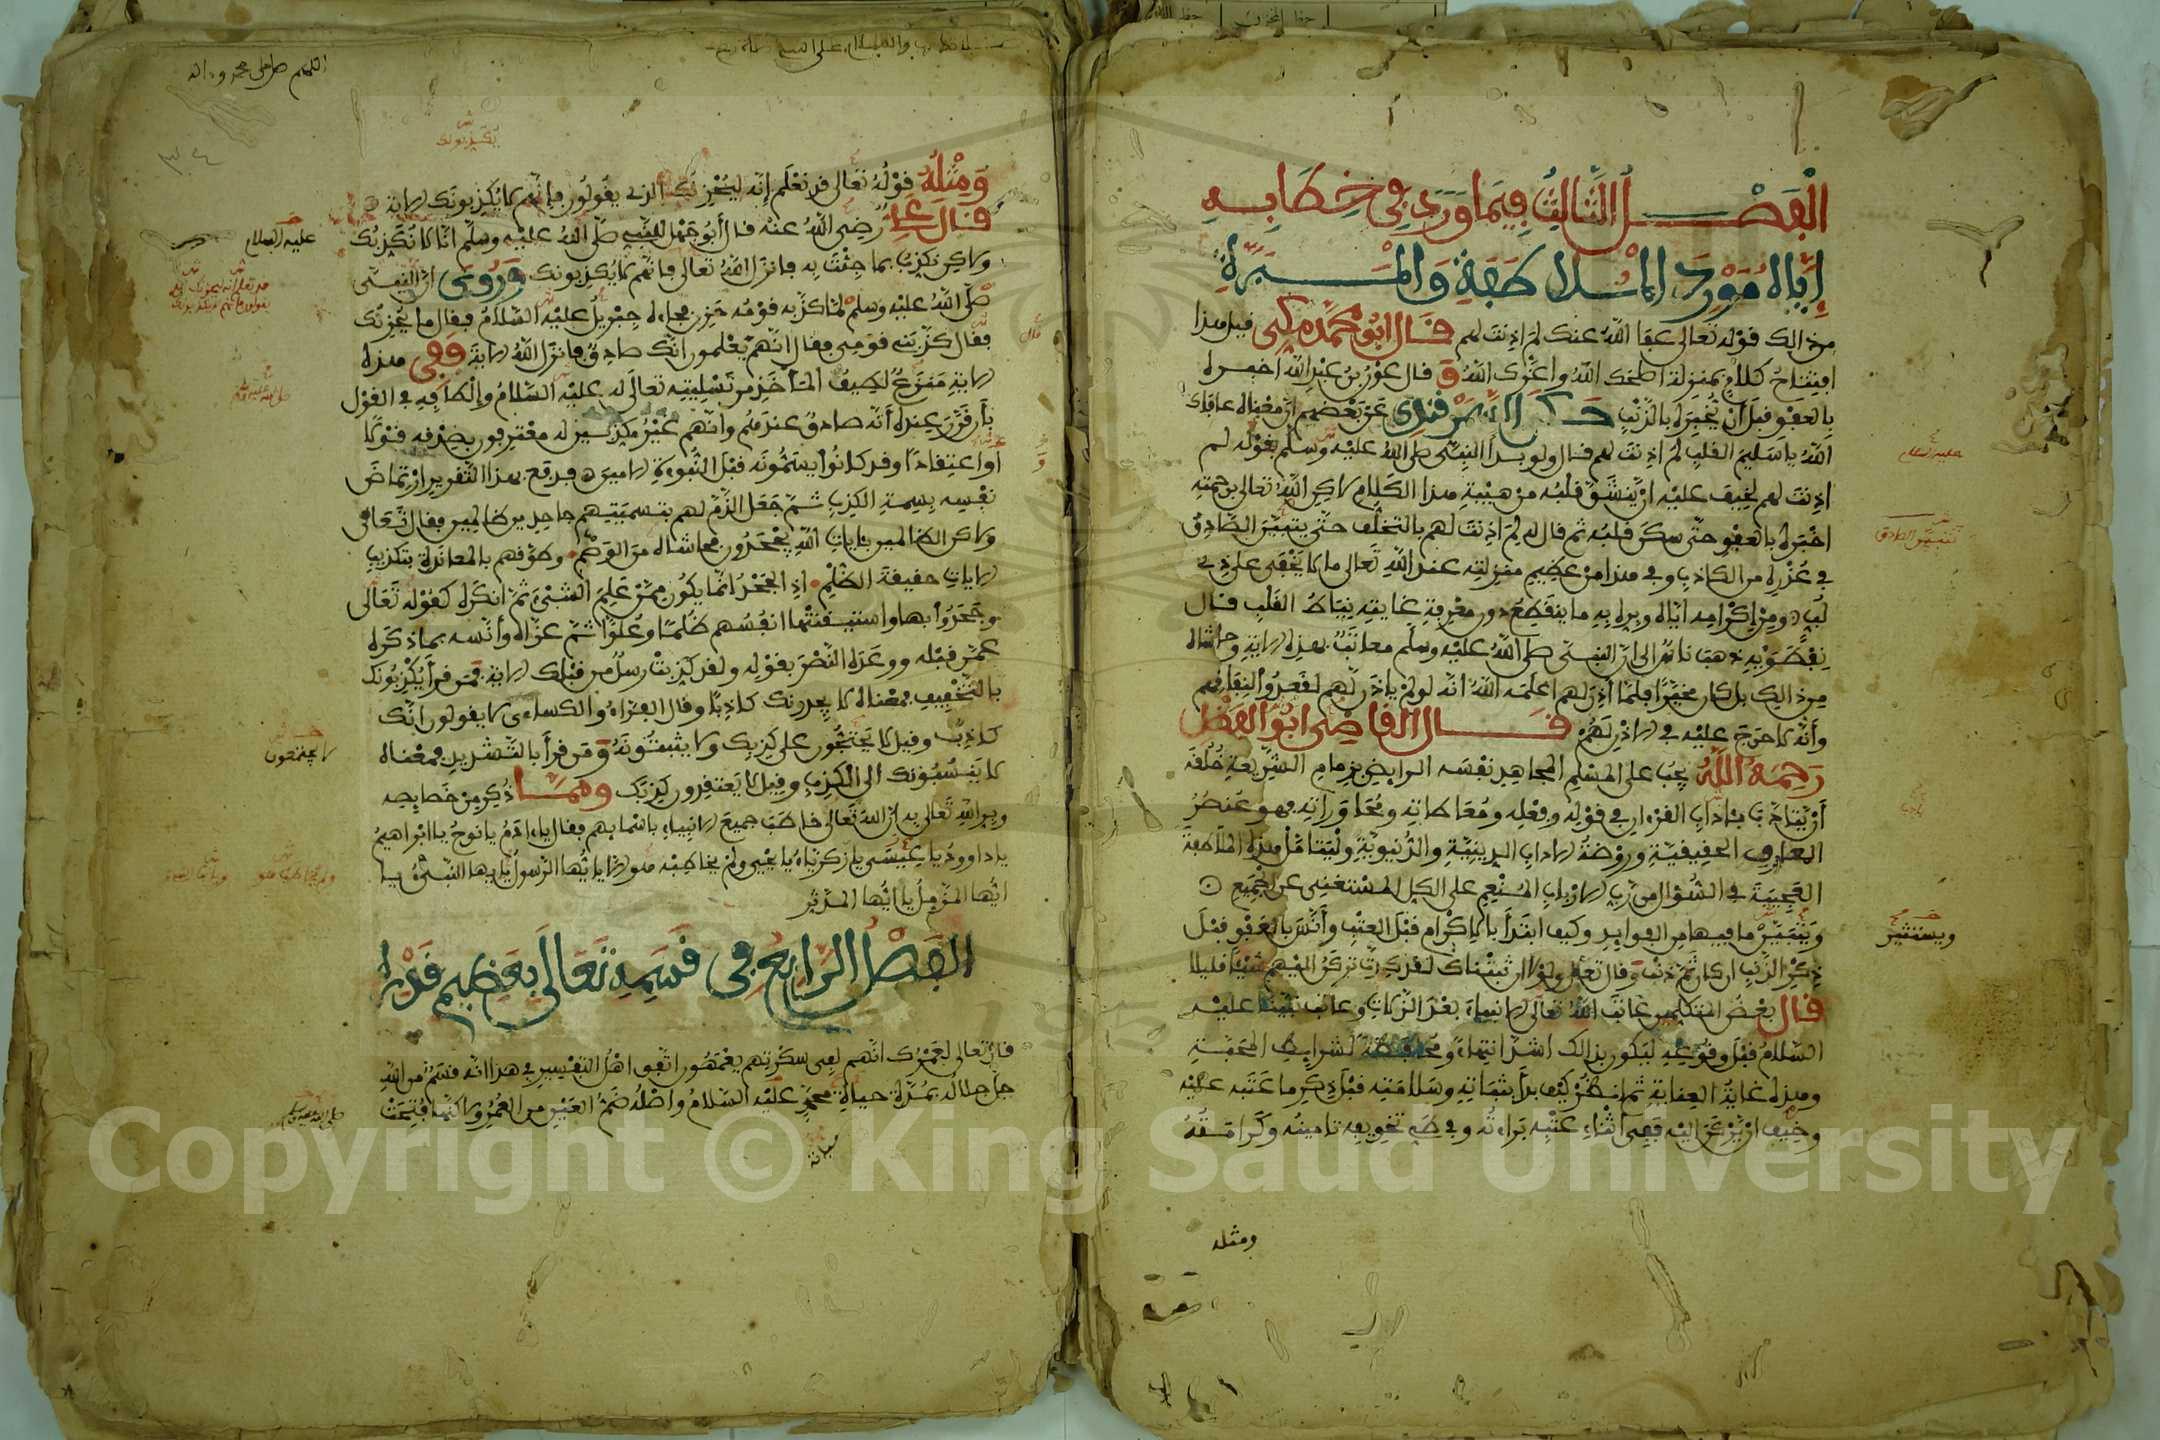 الفصل الثالث فيما ورد في خطابه
إياه مورد الملاطفة والمبرة
من ذلك قوله تعالى عفا الله عنك لم اذنت لهم قال ابو محمد مكي قيل هذا
افتتاح كلام بمنزلة اصلحك الله واعزك الله و قال عون بن عبد الله اخبره
بالعفو قبل ان يخبره بالذنب حكى السمرقندي عن بعضهم ان معناه عافاك
الله يا سليم القلب لم اذنت لهم قال ولو بدأ النبي صلى الله عليه وسلم بقوله لم
اذنت لهم لخيف عليه ان ينشق قلبه من هيبة هذا الكلام لاكن الله تعالى برحمته
اخبره بالعفو حتى سكن قلبه ثم قال له لم اذنت لهم بالتخلف حتى يتبين الصادق
في عذره من الكاذب وفي هذا من عظيم منزلته عند الله تعالى ما لا يخفى على ذي
لب ومن إكرامه اياه وبره به ما ينقطع دون معرفة غايته نياط القلب قال
نفطويه ذهب ناس الى ان النبي صلى الله عليه وسلم معاتب بهذه الاية وحاشاه
من ذلك بل كان مخيرا فلما أذن لهم اعلمه الله انه لو لم ياذن لهم لقعدوا لنفاقهم
وأنه لا حرج عليه في الاذن لهم قال القاضي ابو الفضل
رحمه الله يجب على المسلم المجاهد نفسه الرايض بزمام الشريعة خلقه
أن يتادب بئاداب القرءان في قوله وفعله ومعاطاته ومحاوراته فهو عنصر
المعارف الحقيقية وروضة الاداب الدينية والدنيوية وليتامل هذه الملاطفة
العجيبة في السؤال من رب الارباب المنعم على الكل المستغني عن الجميع
ويتبين ما فيها من الفوايد وكيف ابتدأ بالاكرام قبل العتب وأنس بالعفو قبل
ذكر الذنب ان كان ثم ذنب وقال تعلى ولولا ان ثبتناك لقد كدت تركن اليهم شيئا قليلا
قال بعض المتكلمين عاتب الله تعالى الانبياء بعد الزلات وعاتب نبينا عليه
السلام قبل وقوعه ليكون بذلك اشد انتهاء ومحافظة لشرايط المحبة
وهذه غاية العناية ثم انظر كيف بدأ بثباته وسلامته قبل ذكر ما عتبه عليه
وخيف ان يركن اليه ففي اثناء عتبه براءته وفي طي تخويفه تامينه وكرامته
ومثله
عليه السلام
يتبين الصادق
ويستثير
اللهم صل على محمد وءاله
ومثله قوله تعالى قد نعلم إنه ليحزنك الذي يقولون فإنهم لا يكذبونك الاية
قال علي رضي الله عنه قال أبو جهل للنبي صلى الله عليه وسلم انا لا نكذبك
ولاكن نكذب بما جئت به فانزل الله تعالى فانهم لا يكذبونك وروي ان النبي
صلى الله عليه وسلم لما كذبه قومه حزن فجاءه جبريل عليه السلام فقال ما يحزنك
فقال كذبني قومي فقال انهم يعلمون انك صادق فانزل الله الاية ففي هذه
الاية منزع لطيف المأخذ من تسليته تعالى له عليه السلام والطافه في القول
بأن قرر عنده أنه صادق عندهم وأنهم غير مكذبين له معترفون بصدقه قولا
او اعتقادا وقد كانوا يسمونه قبل النبوءة الامين فدفع بهذا التقرير ارتماض
نفسه بسمة الكذب ثم جعل الذم لهم بتسميتهم جاحدين ظالمين فقال تعالى
ولاكن الظالمين بئايات الله يجحدون فحاشاه من الوصم وطوقهم بالمعاندة بتكذيب
الايات حقيقة الظلم اذ الجحد انما يكون ممن علم الشيء ثم انكره كقوله تعالى
وجحدوا بها واستيقنتها انفسهم ظلما وعلوا ثم عزاه وأنسه بما ذكره
عمن قبله ووعده النصر بقوله ولقد كذبت رسل من قبلك الاية فمن قرأ يكذبونك
بالتخفيف فمعناه لا يجدونك كاذبا وقال الفراء والكساءي لا يقولون انك
كاذب وقيل لا يحتجون على كذبك ولا يثبتونه ومن قرأ بالتشديد فمعناه
لا ينسبونك الى الكذب وقيل لا يعتقدون كذبك ومما ذكر من خصايصه
وبر الله تعالى به ان الله تعالى خاطب جميع الانبياء باسمايهم فقال ياءادم يا نوح يا ابراهيم
يا داوود يا عيسى يا زكرياء يا يحيى ولم يخاطبه هو الا يا يها الرسول يا يها النبيء يا
ايها المزمل يا ايها المدثر
الفصل الرابع في قسمه تعالى بعظيم قدره
قال تعالى لعمرك انهم لفي سكرتهم يعمهون اتفق اهل التفسير في هذا انه قسم من الله
جل جلاله بمدة حياة محمد عليه السلام واصله ضم العين من العمر ولاكنها فتحت
يكذبونك
عليه السلام
لا يحتجون
صلى الله عليه وسلم
Copyright © King Saud University